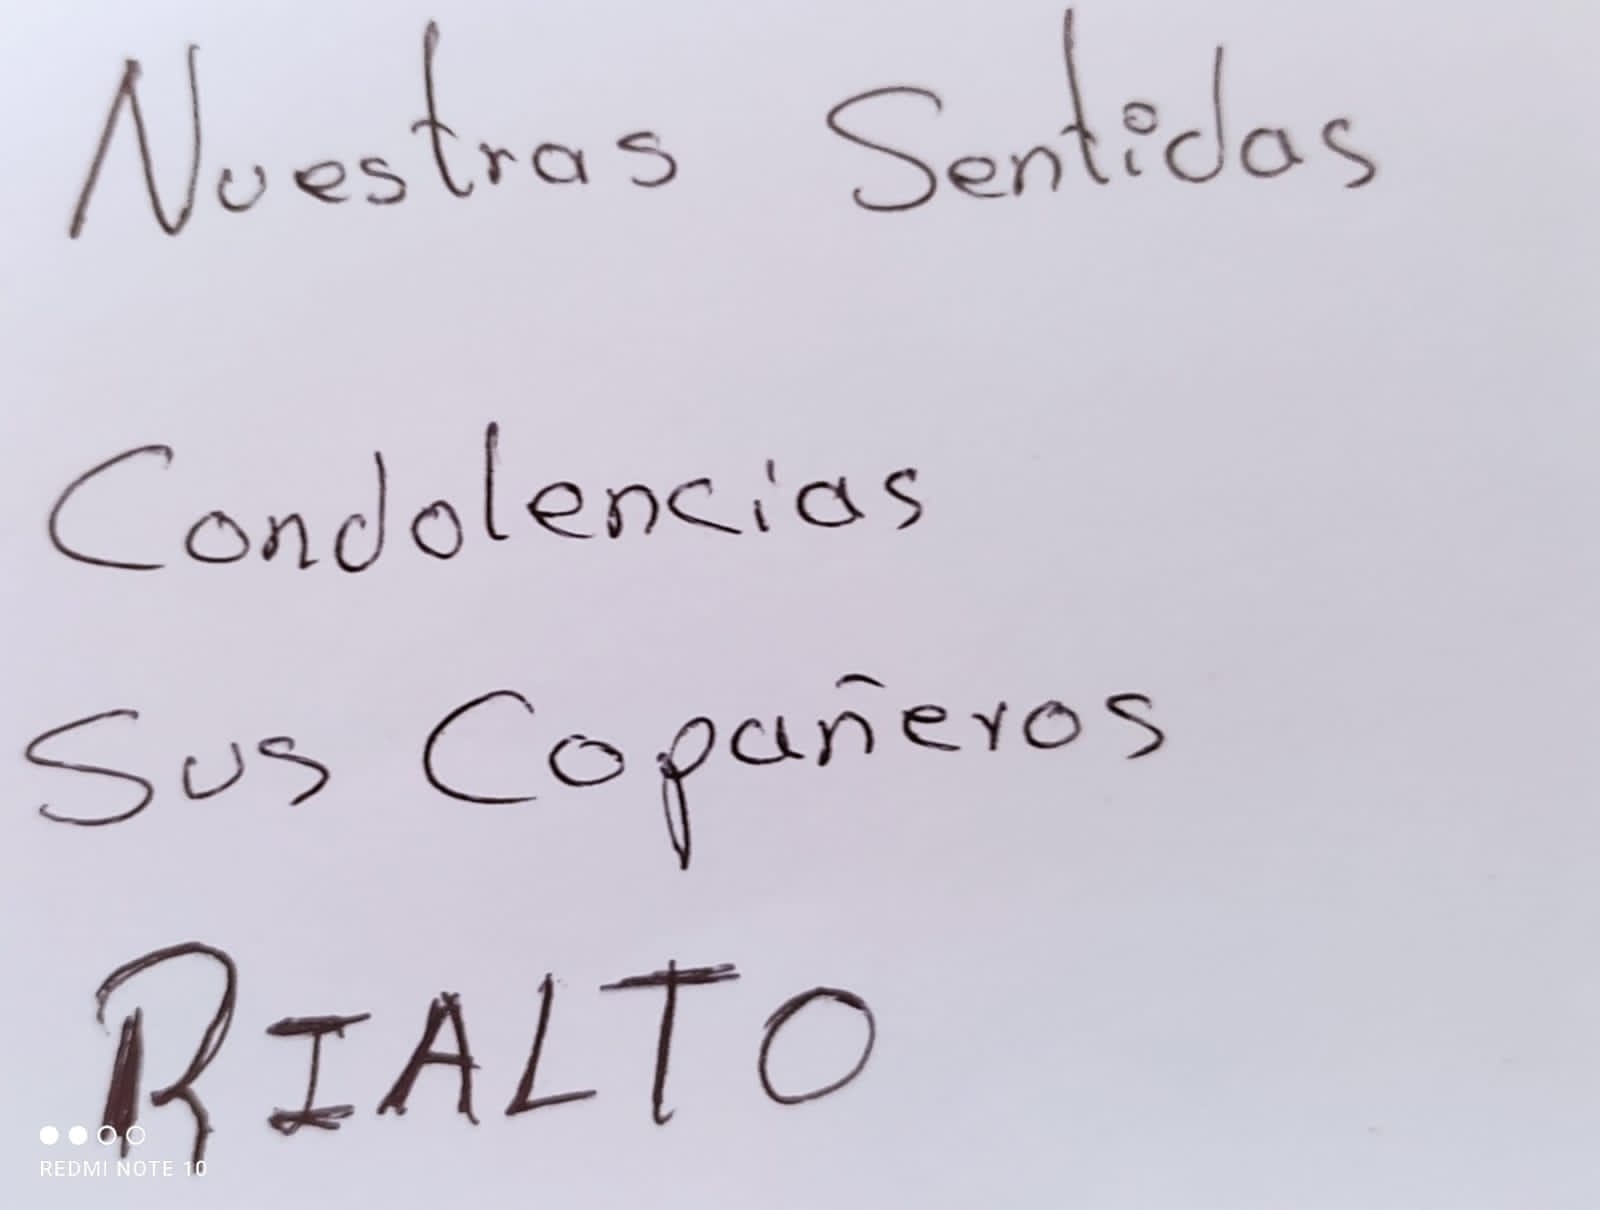 Nuestras Sentidas
Condolencias
Sus Copañeros
RIALTO
REDMI NOTE 10